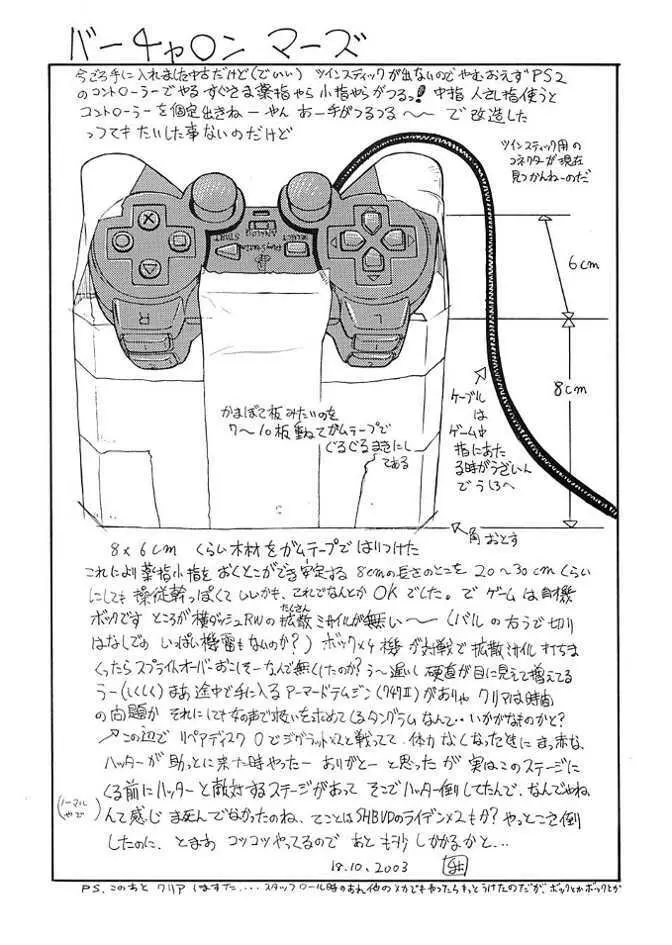 バーチャロン マーズ
今ごろ手に入れました中古だけど(でいい) ツインスティックが出ないのでやむおえずPS2
のコントローラーでやる すぐさま薬指やら小指やらがつるっ! 中指 人さし指使うと
コントローラーを固定出きねーやん おー手がつるつる〜〜 で改造した
ってもたいした事ないのだけど
ツインスティック用の
コネクターが現在
見つかんねーのだ
SELECT
ANALOG
START
PlayStation
R
L
1
2
1
2
6cm
8cm
かまぼこ板みたいのを
7〜10板重ねてガムテープで
ぐるぐるまきにし
てある
ケーブル
は
ゲーム中
指にあた
る時がうざいん
でうしろへ
角おとす
8×6cm くらい木材をガムテープではりつけた
これにより薬指小指をおくとこができ安定する 8cmの長さのとこを 20〜30cmくらい
にしても操縦幹っぽくていいかも、これでなんとかOKでした。で ゲームは自機
ボックです ところが横ダッシュRWの拡散ミサイルが無い〜(バルの右うで切り
たくさん
はなしでの いっぱい機雷もないのか?) ボック×4機が対戦で拡散ミサイル打ちま
くったらスプライトオーバーおこしそーなんで無くしたのか? う〜遅い 硬直が目に見えて増えてる
うー(しくしく) まあ途中で手に入るアーマードテムジン(747Ⅱ)がありゃ クリアは時間
の問題か それにしても女の声で扱いを求めてくるタングラムなんて‥いかがなものかと?
↗この辺で リペアディスク0でジグラット×2と戦ってて 体力なくなったときに まっ赤な、
ハッターが助っとに来た時やったー ありがとーと思ったが 実はこのステージに
くる前にハッターと敵対するステージがあって そこでハッター倒してたんで、なんでやねん
(ノーマルやで)
んて感じ ま死んでなかったのね、てことはSHBVDのライデン×2もか? やっとこさ倒
したのに、とまあ コツコツやってるので あともう少ししかかるかと…
18.10.2003
PS. このあと クリアしますた....スタッフロール時のおれ他のメカでもやったらもっとうけたのだが、ボックとかボックとか